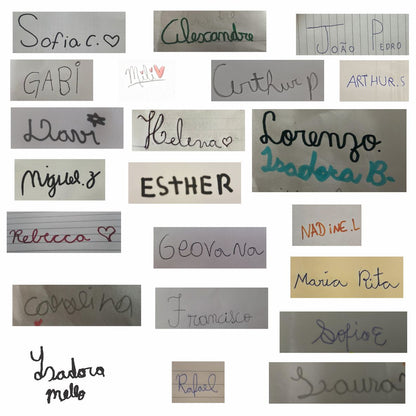 Sofia C.
Alexandre
João Pedro
GABi
Mili
Arthur p
ARTHUR.S
Davi
Helena
Lorenzo.
Isadora B.
Miguel.z
ESTHER
Rebecca
Geovana
NADiNE.L
Maria Rita
Carolina
Francisco
Sofia E
Isadora
Mello
Rafael
Isaura